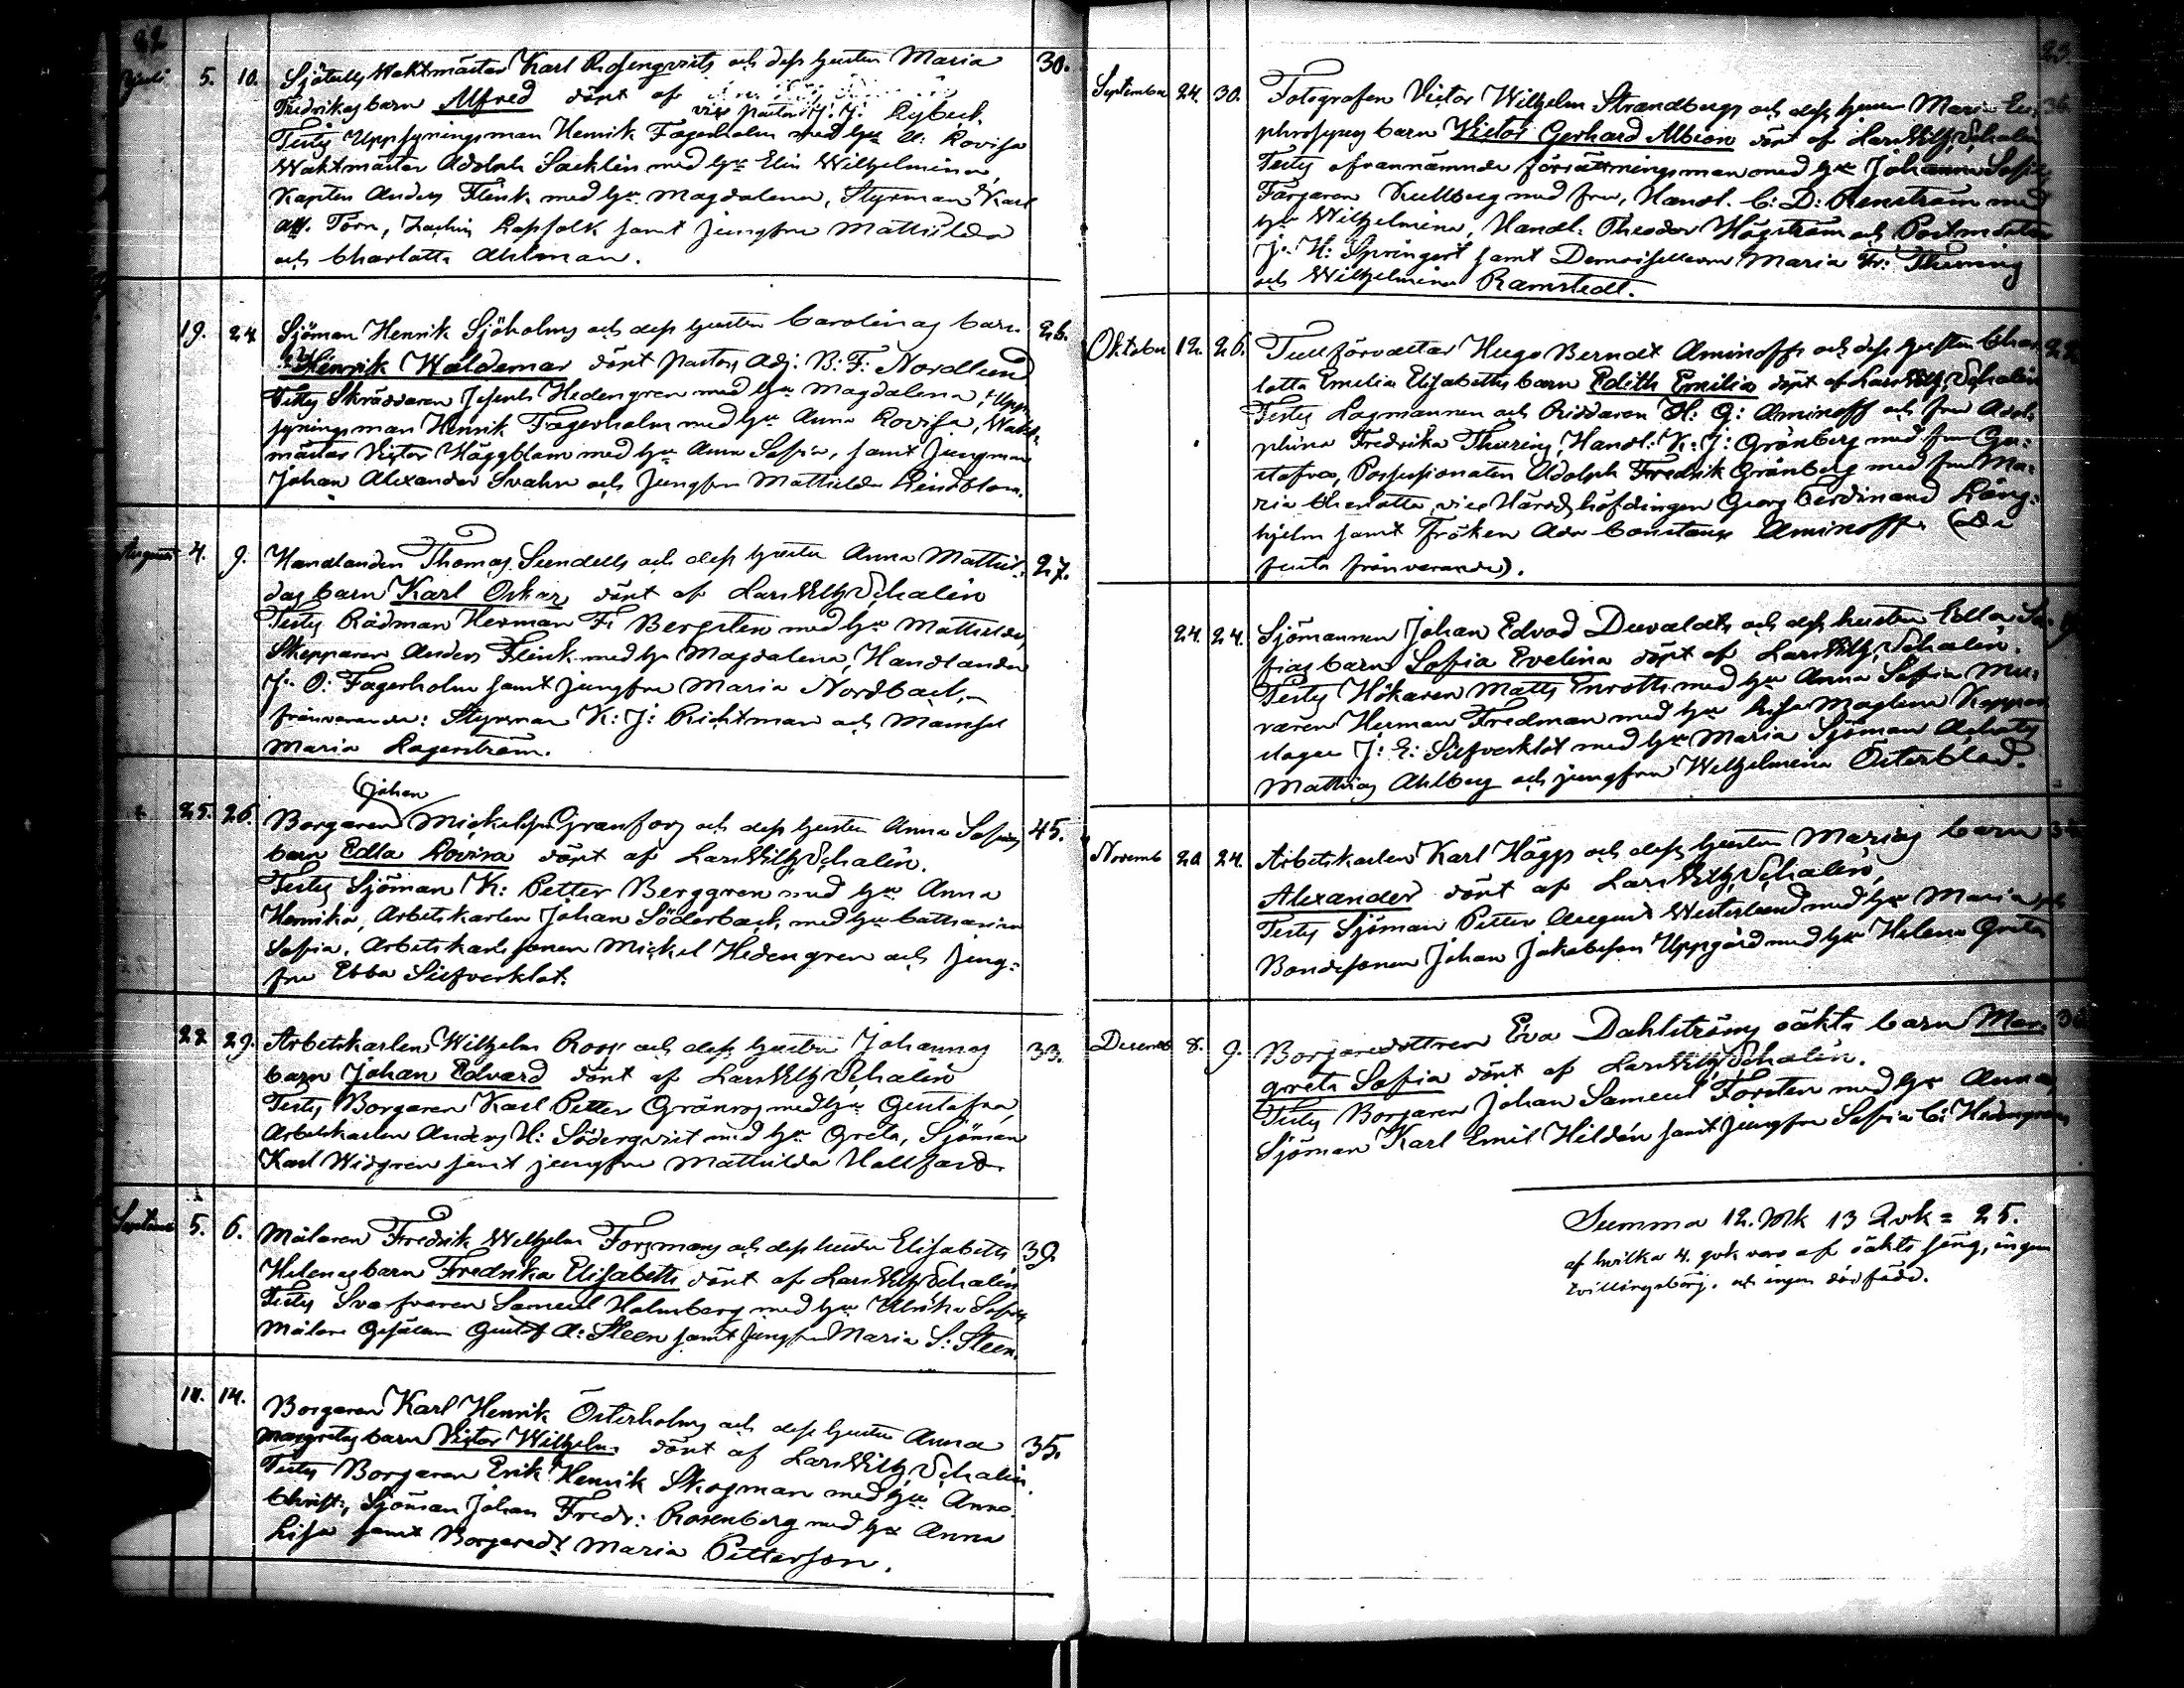 22
Juli 5. 10. Sjötullswaktmästar Karl Rosenqvists och dess hustru Maria 30.
Fredrikas barn Alfred döpt af
vice pastor J. J. Rybeck.
Testes Uppsyningsman Henrik Fagerholm med hu A: Lovisa
Waktmästar Adolph Sacklin med hu Elin Wilhelmina,
Kapten Anders Flink med hu Magdalena, Styrman Karl
Törn, samt jungfru Mathilda
och Charlotta Ahlman.
19. 24. Sjöman Henrik Sjöholms och dess hustru Carolinas barn 26.
Henrik Waldemar döpt pastors adj: B: F: Nordlund
Testes Skräddaren Joseph Hedengren med hu Magdalena, Upp-
syningsman Henrik Fagerholm med hu Anna Lovisa, Wakt-
mästar Victor Häggblom med hu Anna Sofia, samt Jungman
Johan Alexander Svahn och Jungfru Mathilda Lindblom.
Augusti 4. 9. Handlanden Thomas Sundells och dess hustru Anna Mathil- 27.
das barn Karl Oskar döpt af Lars Wilh. Schalin
Testes Rådman Herman Fr Bergsten med hu Mathilda,
Skepparen Anders Flink med hu Magdalena, Handlanden
J. O: Fagerholm samt jungfru Maria Nordback,
frånvarande: Styrman K: J: Richtman och Mamsel
Maria Lagerström.
Johan
25. 26. Borgaren Mickelsson Granfors och dess hustru Anna Sofias 45.
barn Edla Lovisa döpt af Lars Wilh. Schalin.
Testes Sjöman K: Petter Berggren med hu Anna
Henrika, Arbetskarlen Johan Söderback, med hu Catharina
Sofia, Arbetskarlssonen Mickel Hedengren och Jung-
fru Ebba Silfverklot.
28. 29. Arbetskarlen Wilhelm Roos och dess hustru Johannas 33.
barn Johan Edvard döpt af Lars Wilh. Schalin
Testes Borgaren Karl Petter Grönros med hu Gustafva,
Arbetskarlen Anders H: Söderqvist med hu Greta, Sjöman
Karl Widgren samt jungfru Mathilda Hallfard
Septemb 5. 6. Målaren Fredrik Wilhelm Forsmans och dess hustru Elisabeth 39.
Helenas barn Fredrika Elisabeth döpt af Lars Wilh. Schalin
Testes Svarfvaren Samuel Holmberg med hu Ulrika Sofia,
Målare Gesällen Gustaf A: Steen samt jungfru Maria S: Steen.
11. 14. Borgaren Karl Henrik Österholms och dess hustru Anna 35.
Margretas barn Victor Wilhelm döpt af Lars Wilh. Schalin.
Testes Borgaren Erik Henrik Skogman med hu Anna
Christ:, Sjöman Johan Fredr: Rosenberg med hu Anna
Lisa samt Borgaredt Maria Petterson.
23
September 24. 30. Fotografen Victor Wilhelm Strandbergs och dess hustru Maria Eu- 36
phrosynes barn Victor Gerhard Albion döpt af Lars Wilh. Schalin
Testes ofvannämnde försättningsman med hu Johanna Sofia,
Färgaren Kullberg med fru, Handl. C: D: Renström med
hu Wilhelmina, Handl: Theodor Högström och Postmästar
J. H: Springert samt Demoisellerna Maria Fr: Thuring
och Wilhelmina Ramstedt.
Oktober 12. 26. Tullförvaltar Hugo Berndt Aminoffs och dess hustru Char-
lotta Emelia Elisabeths barn Edith Emilia döpt af Lars Wilh. Schalin
Testes Lagmannen och Riddaren H: G: Aminoff och fru Adol-
phina Fredrika Thuring, Handl: K: J: Grönberg med fru Gu-
stafva, Possessionaten Adolph Fredrik Grönberg med fru Ma-
ria Charlotta, vice Häradshöfdingen Georg Ferdinand Lång-
hjelm samt Fröken Ada Constance Aminoff. (De
frånvarande).
24. 24. Sjömannen Johan Edvad Duvaldts och dess hustru Edla So-
fias barn Sofia Evelina döpt af Lars Wilh. Schalin.
Testes Hökaren Matts Enroth med hu Anna Sofia Mu-
raren Herman Fredman med hu Lisa Maglena Koppar-
slagar J: E: Silfverklot med hu Maria Sjöman
Mathias Ahlberg och jungfru Wilhelmina Österblad.
Novemb 20. 24. Arbetskarlen Karl Häggs och dess hustru Marias barn
Alexander döpt af Lars Wilh. Schalin,
Testes Sjöman Petter August Westerlund med hu Maria, och
Bondesonen Johan Jakobsson Uppgård med hu Helena Greta
Decemb 8. 9. Borgaredottren Eva Dahlströms oäkta barn Mar- 36
greta Sofia döpt af Lars Wilh. Schalin.
Testes Borgaren Johan Samuel Forsten med hu Anna,
Sjöman Karl Emil Hildén samt jungfru Sofia C: Hedengren
Summa 12. Mk 13 Qvk = 25.
af hvilka 4. qvk voro af oäkta säng, ingen
tvillingsbörj. och ingen dödfödd.